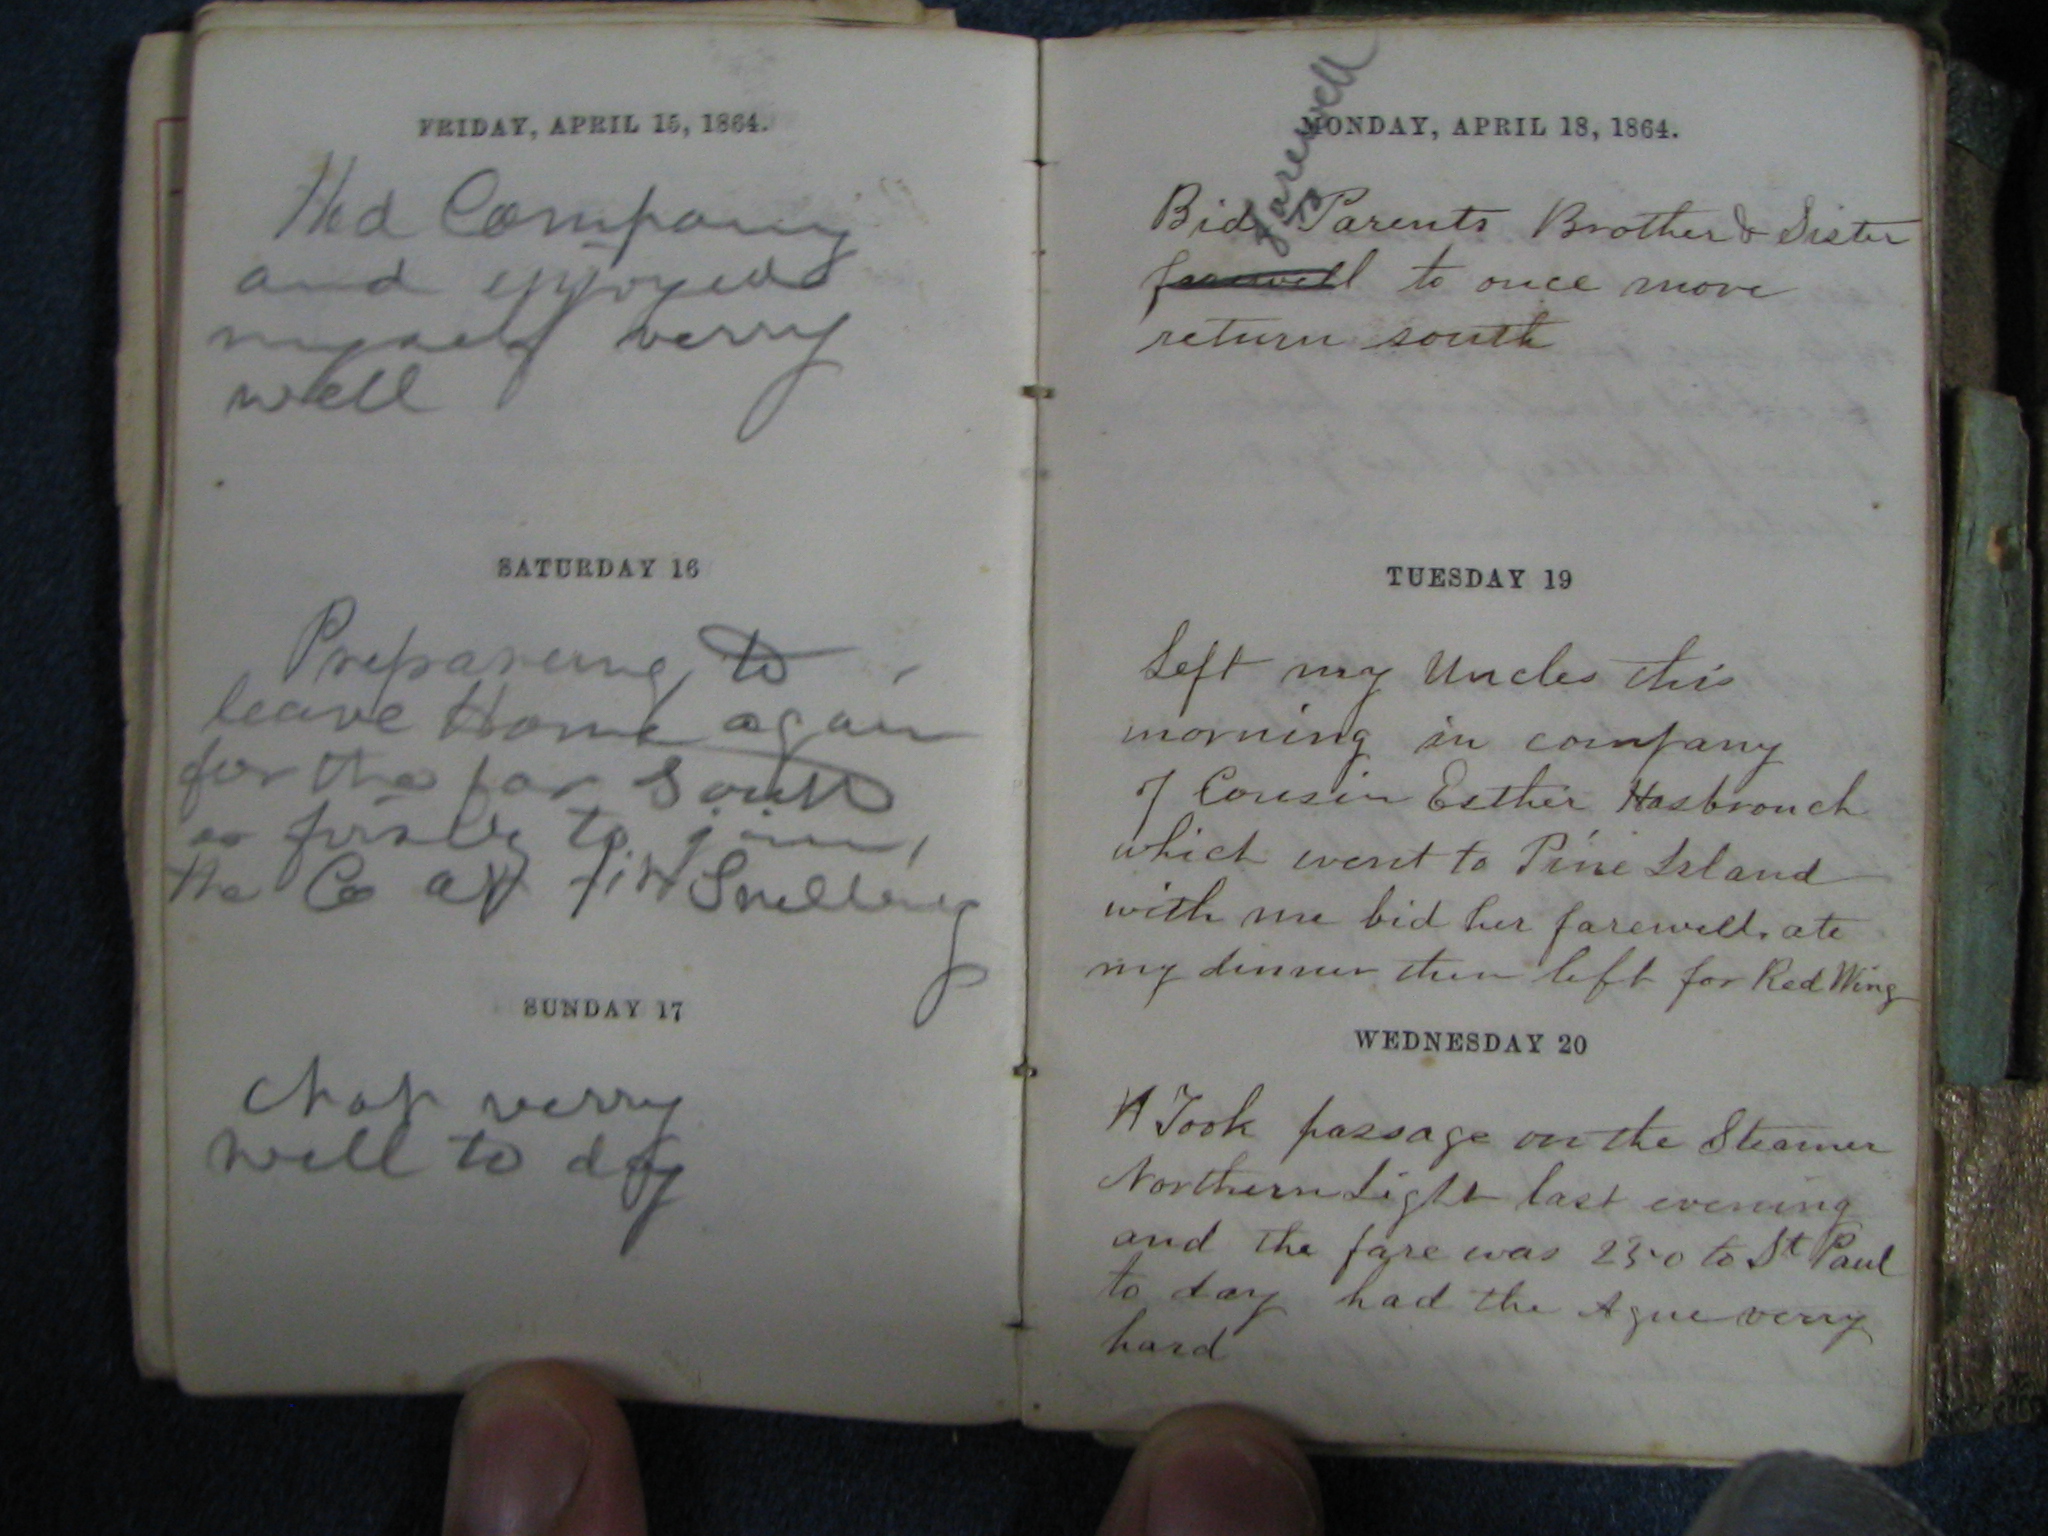 FRIDAY, APRIL 15, 1864.
Had Company
and enjoyed
myself verry
well
SATURDAY 16
Prepareing to
leave Home again
for the far South
firstly to join
the Co at Ft Snelling
SUNDAY 17
Chop verry
well to day
MONDAY, APRIL 18, 1864.
farewell
Bid to Parents Brother & Sister
farewell to once more
return south
TUESDAY 19
Left my Uncles this
morning in company
of Cousin Esther Hasbrouck
which went to Pine Island
with me bid her farewell. ate
my dinner then left for Red Wing
WEDNESDAY 20
Took passage on the Steamer
Northern Light last evening
and the fare was 250 to St Paul
to day had the Ague verry
hard